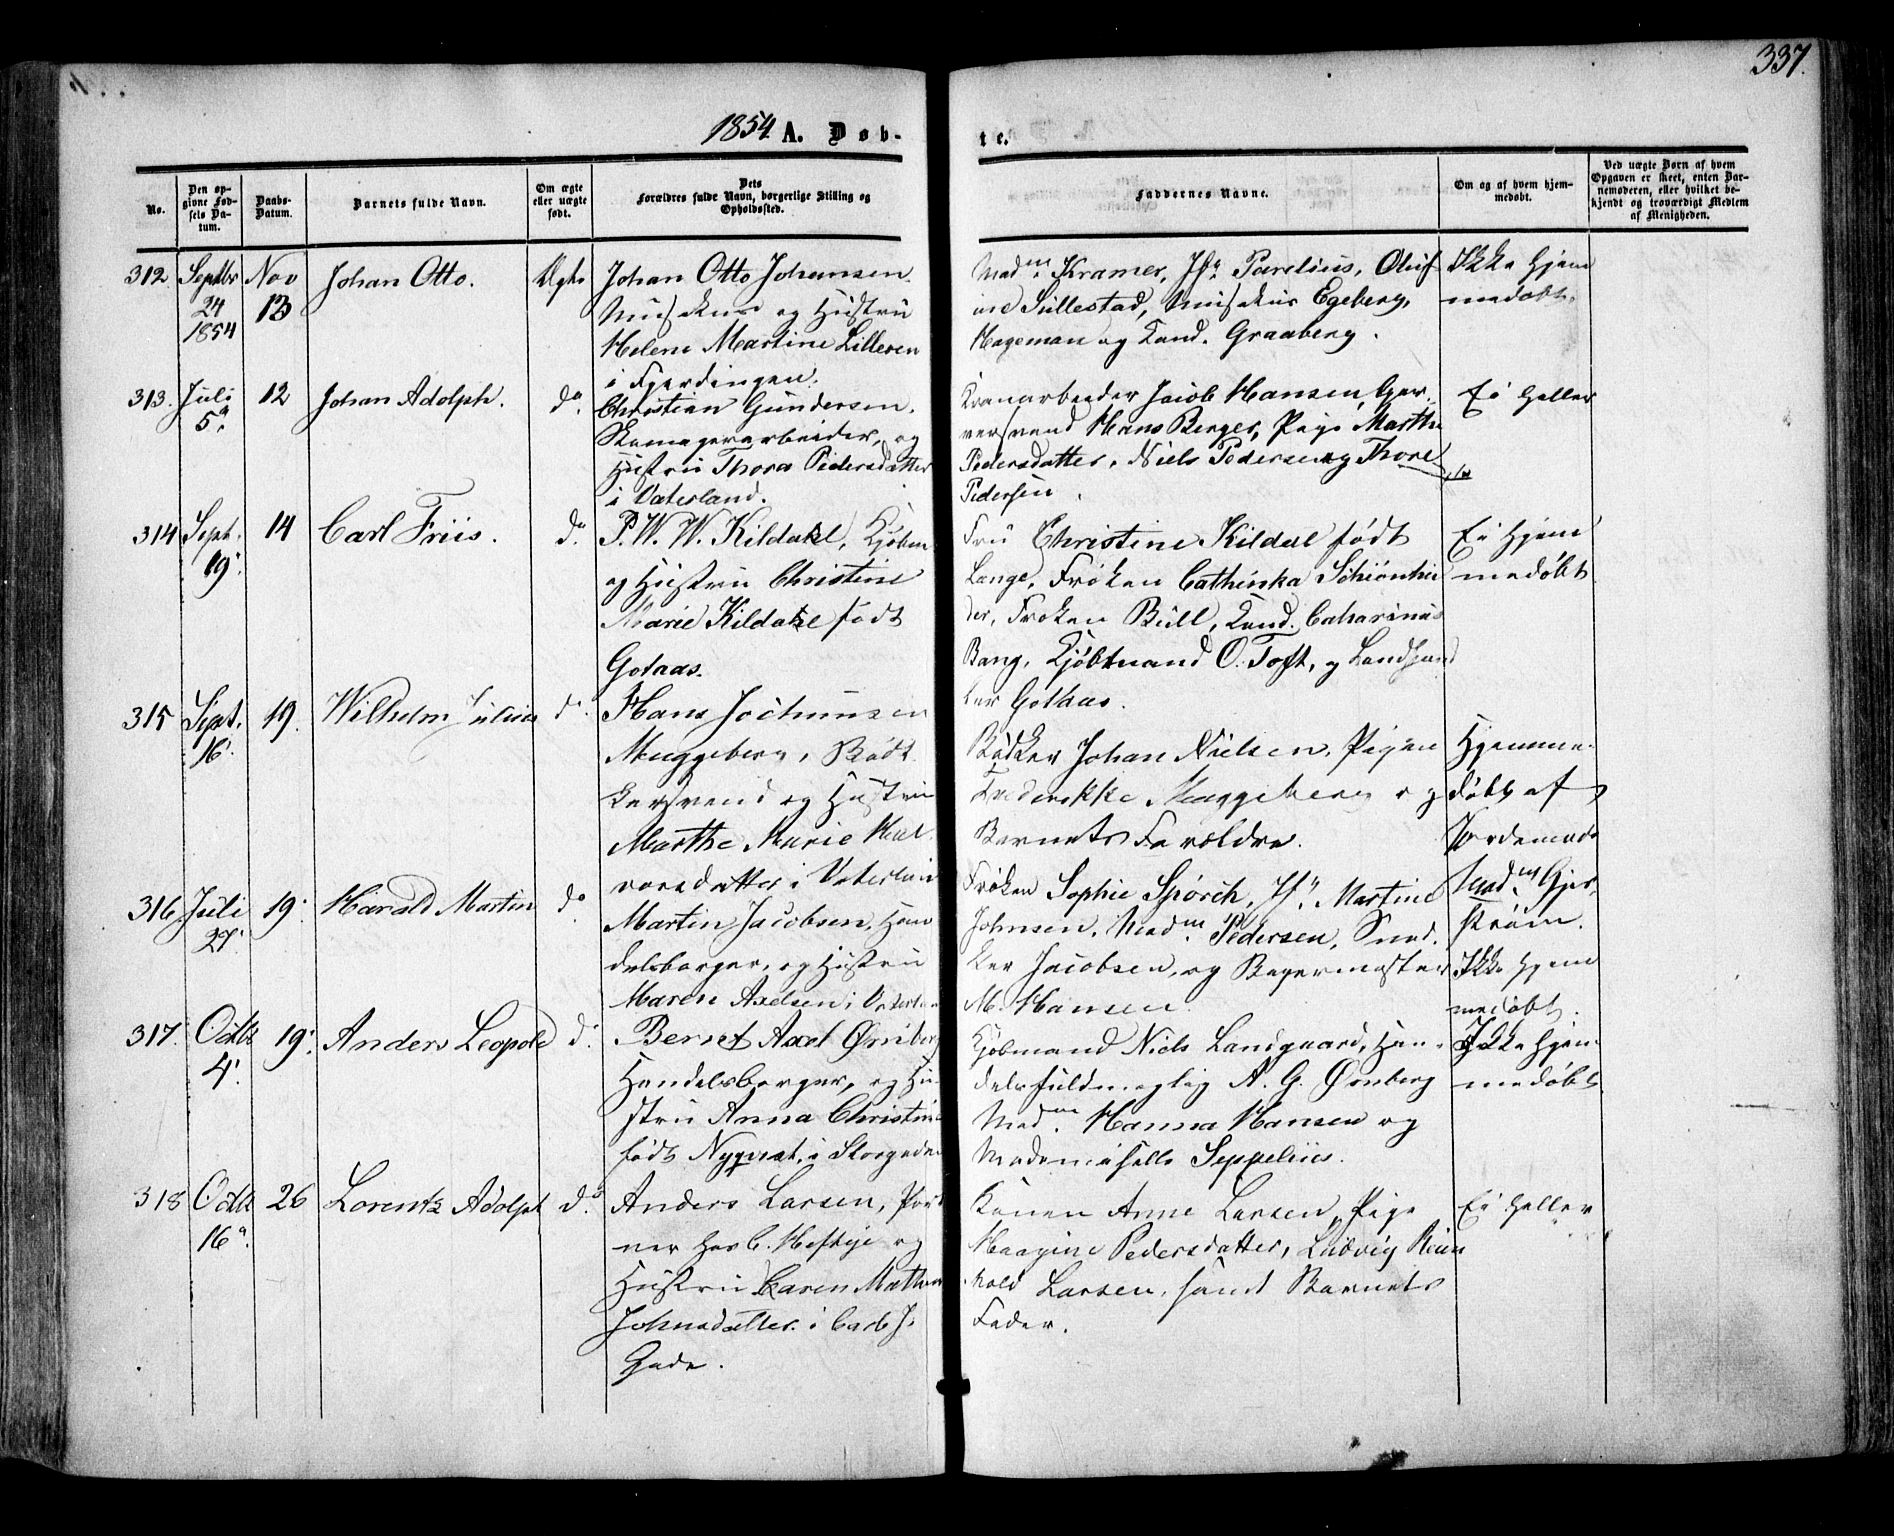 337.
1854 A. Døb-
te.
No.
Den op-
givne Fød-
sels Da-
tum.
Daabs-
Datum.
Barnets fulde Navn.
Om ægte
eller uægte
født.
Dets
Forældres fulde Navn, borgerlige Stilling og
Opholdssted.
Faddernes Navne.
Om og af hvem hjem-
medøbt.
Ved uægte Børn af hvem
Opgaven er skeet, enten Bar-
nemoderen, eller hvilket be-
kjendt og troværdigt Medlem
af Menigheden.
312
Septbr
24
1854
Nov
12
Johan Otto.
Ægte
Johan Otto Johansen
Musikus og Hustru
Helene Martine Lillesen
i Fjerdingen.
Madm Kramer, Jfr Parelius, Oluf
ine Sillestad, Musikus Egeberg,
Hageman og Cand. Graaberg.
Ikke Hjem
medøbt.
313.
Juli
5
12
Johan Adolph.
do
Christian Gundersen.
Skomagerarbeider, og
Hustru Thora Pedersdatter
i Vaterland.
Kranarbeider Jacob Hansen, Gar
versvend Hans Berger, Pige Marthe
Pedersdatter, Niels Pedersen og Thore
Pedersen.
Ei heller
314
Sept.
19
14
Carl Friis.
do
P. W. W. Kildahl, Kjøbm
og Hustru Christine
Marie Kildahl født
Gotaas.
Fru Christine Kildal født
Lange, Frøken Cathinka Schiønhei
der, Frøken Bull, Cand. Catharinus
Bang, Kjøbmand O. Toft, og Landhand
ler Gothaas.
Ei Hjem
medøbt
315
Sept.
16
19.
Wilhelm Julius
do
Hans Jochumsen
Muggeberg, Bødk
kersvend og Hustru
Marthe Marie Hal
vorsdatter i Vaterland
Bødker Johan Nielsen, Pigen
Frederikke Muggeberg og
Barnets Forældre.
Hjemme-
døbt af
Jordemod
Madm Gjer
strøm.
316
Juli
27
19
Harald Martin
do
Martin Jacobsen, Han
delsborger, og Hustru
Maren Axelsen i Vaterlan
Frøken Sophie Spørck, Jfr Martine
Johnsen, Madm Pedersen, Sned
ker Jacobsen, og Bagermester
M. Hansen
Ikke Hjem
medøbt.
317.
Octb
4
19
Anders Leopold
do
Bernet Axel Ørnberg
Handelsborger, og Hu-
stru Anna Christine
født Nyqvist, i Storgaden
Kjøbmand Niels Landgaard, Han-
delsfuldmægtig A. G. Ørnberg
Madm Hanna Hansen og
Mademoiselle Seppelius.
Ikke Hjem
medøbt
318
Octb
16
26
Lorentz Adolph
do
Anders Larsen, Port
ner hos C. Heftye og
Hustru Caren Mathea
Johnsdatter i Carl J.
Gade.
Konen Anne Larsen, Pige
Haagine Pedersdatter, Ludvig Rein
hold Larsen, samt Barnets
Fader.
Ei heller